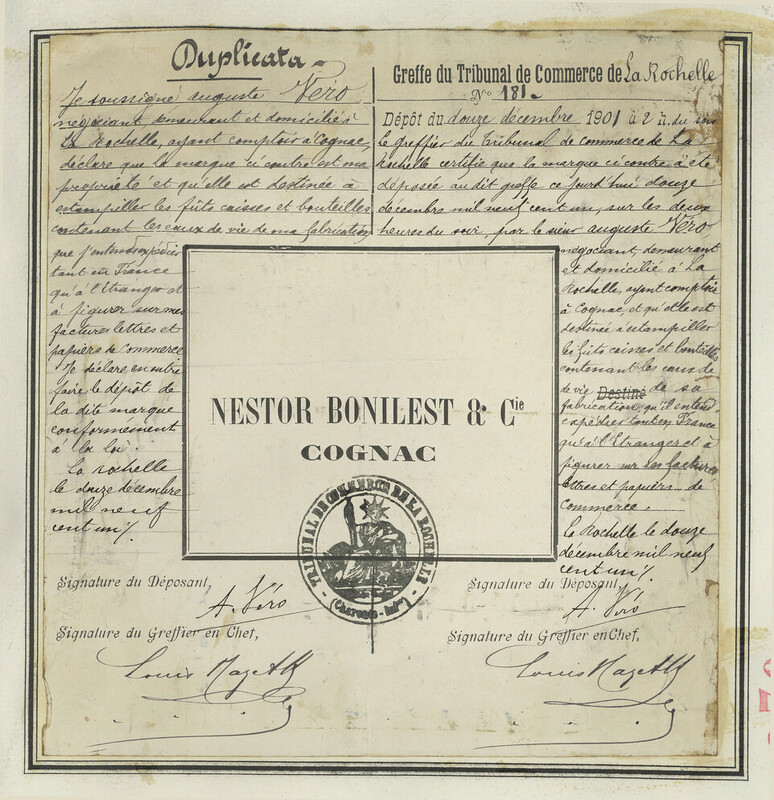 Duplicata
Je soussigné auguste Véro
négociant demeurant et domicilié à
La Rochelle, ayant comptoir à Cognac,
déclare que la marque ci contre est ma
propriété et qu'elle est destinée à
estampiller les fûts caisses et bouteilles
contenant les eaux de vie de ma fabrication
que j'entends expédier
tant en France
qu'à l'Etranger et
à figurer sur mes
factures lettres et
papiers de Commerce
Je déclare en outre
faire le dépôt de
la dite marque
conformément
à la loi.
La rochelle
le douze décembre
mil neuf
cent un
Signature du Déposant,
A. Véro
Signature du Greffier en Chef,
Greffe du Tribunal de Commerce de La Rochelle
No 181.
Dépôt du douze décembre 1901 à 2 h. du soir
Le greffier du Tribunal de commerce de La
Rochelle certifie que la marque ci contre a été
déposée au dit greffe ce jourd'hui douze
décembre mil neuf cent un, sur les deux
heures du soir, par le sieur auguste Véro
négociant, demeurant
et domicilié à La
Rochelle, ayant comptoir
à Cognac, et qu'elle est
destinée à estampiller
les fûts caisses et bouteilles
contenant les eaux de
de vie Destiné de sa
fabrication, qu'il entend
expédier tant en France
qu'à l'Etranger et à
figurer sur les factures
lettres et papiers de
Commerce.
La Rochelle le douze
décembre mil neuf
cent un
Signature du Déposant,
A. Véro
Signature du Greffier en Chef,
NESTOR BONILEST & Cie
COGNAC
TRIBUNAL DE COMMERCE DE LA ROCHELLE
(Charente-Infre)